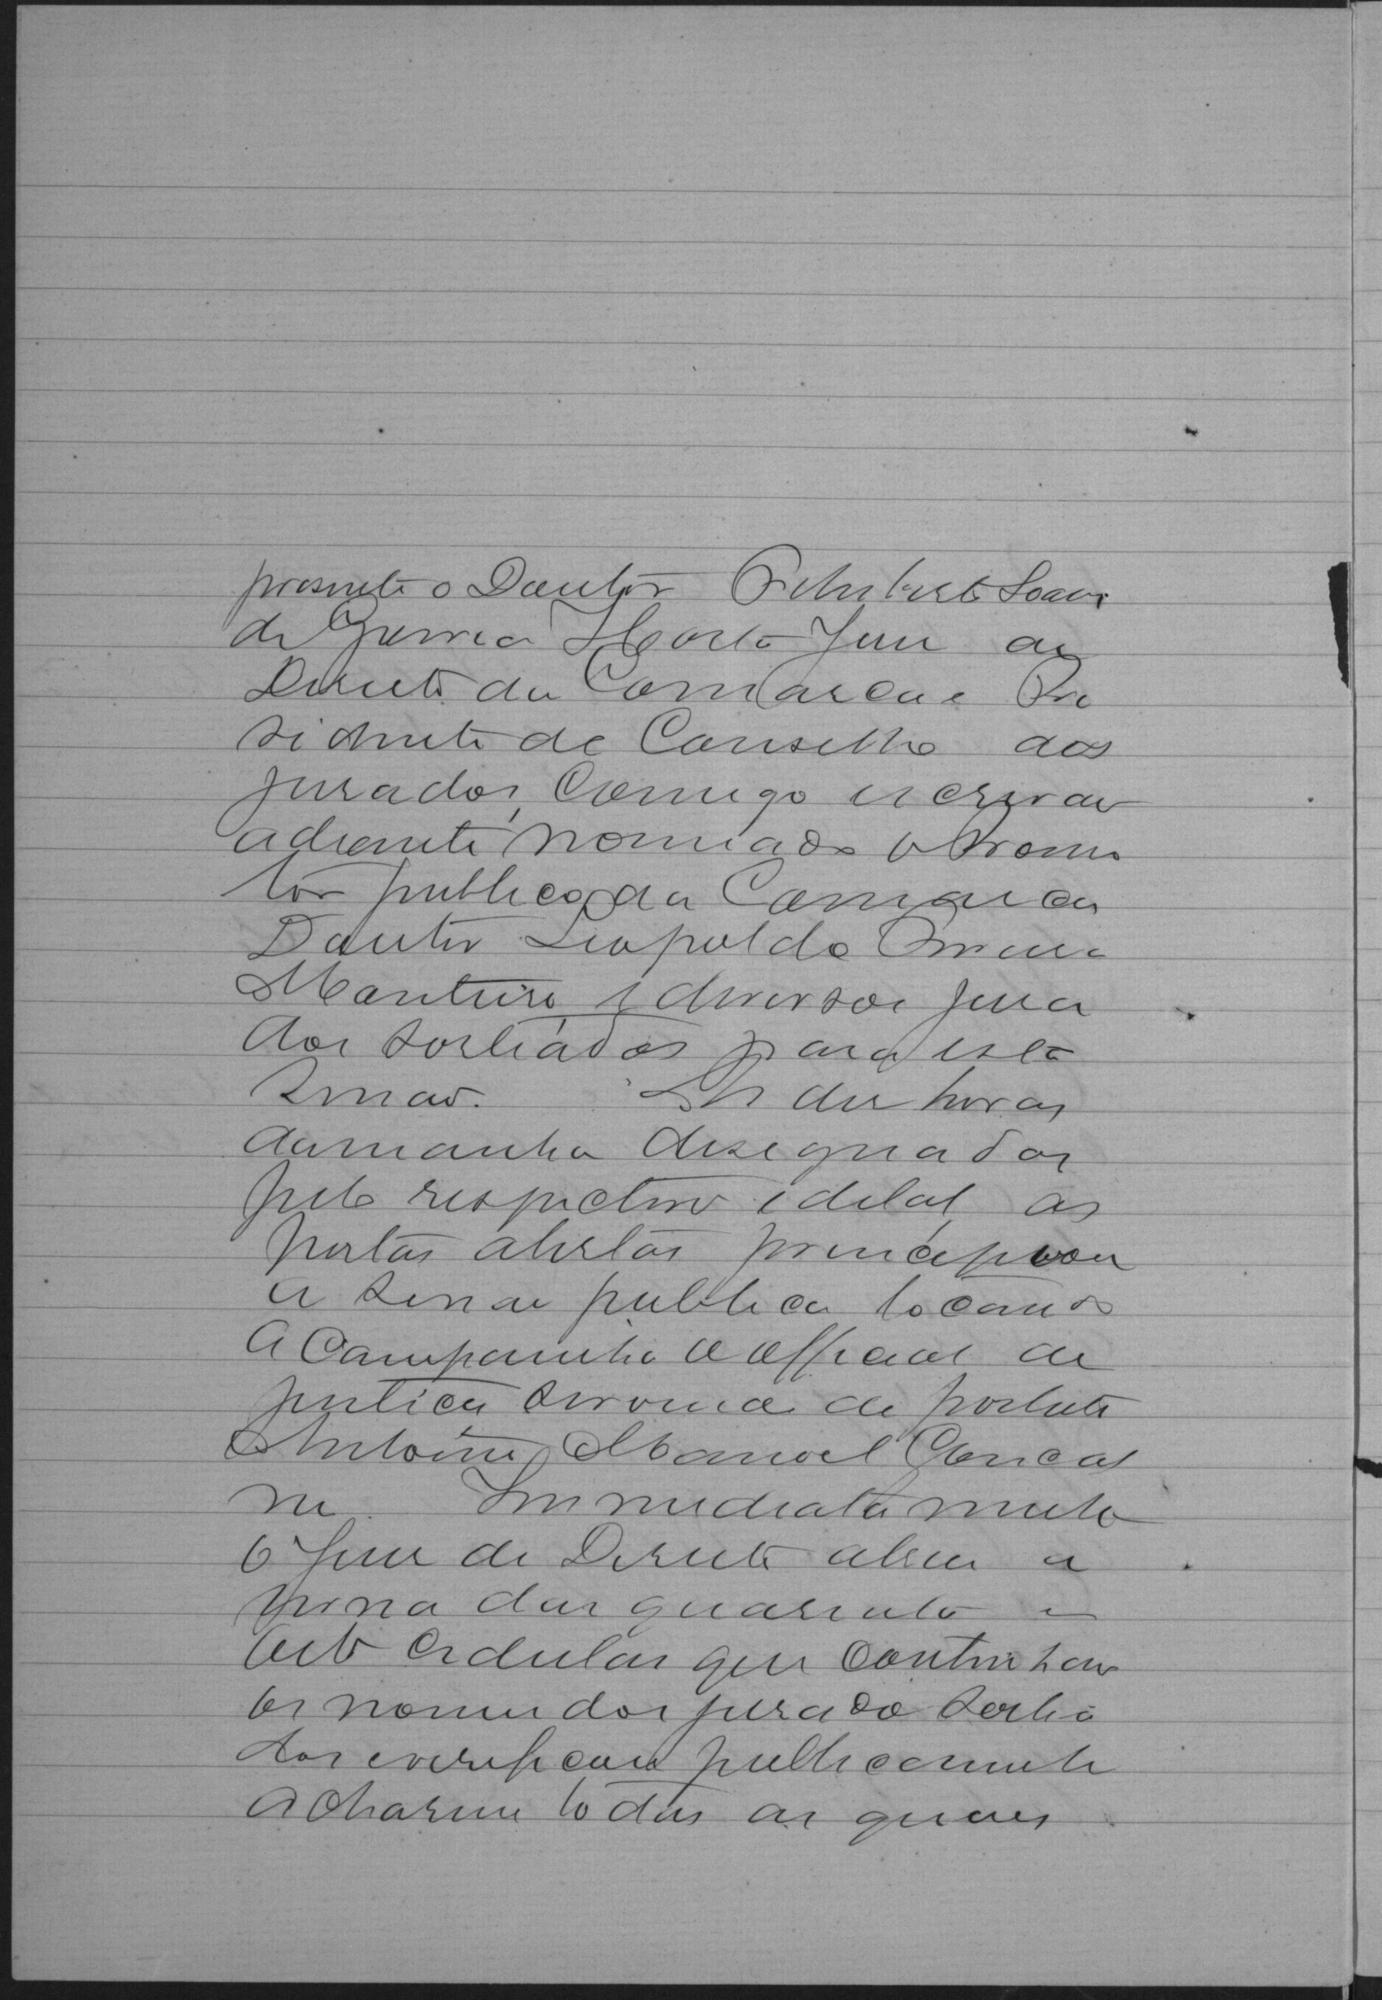 presente o Doutor Philiberto Soares
de Gouvea Horta Juiz de
Direito da Comarca e Pre
sidente do Conselho dos
jurados, Comigo escrivão
adiante nomiado o Promo
tor publico da Comarca
Doutor Leopoldo
Monteiro, e diversos jura
dos sortiados para esta
sessão. As dez horas
da manha designadas
pelo respectivo edital, as
portas abertas principiou
a sessão publica tocando
a Campainha o official de
justiça servindo de porteiro
Antonio Manoel Goncal
ves. Immediatamente
o Juiz de Direito abriu a
urna das quarenta e
oito cedulas que continhão
os nomes dos jurado sortia
dos e verificou publicamente
acharem todas as quaes